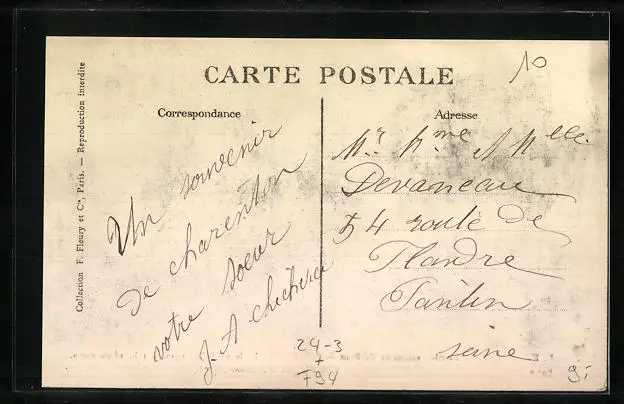 CARTE POSTALE
10
Correspondance
Adresse
Collection F. Fleury et Cie, Paris. — Reproduction interdite
Un souvenir
de charenton
votre soeur
J-A
Mr. Mme et Melle.
Devaneau
54 route de
Flandre
Pantin
seine
24-3
794